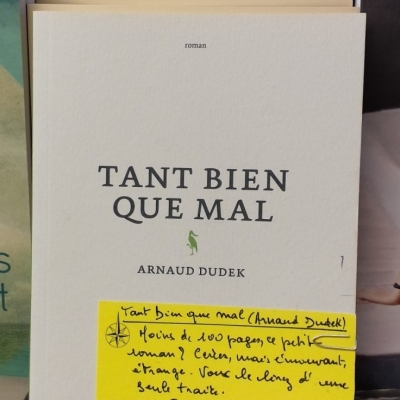 roman
TANT BIEN
QUE MAL
ARNAUD DUDEK
s
t
Tant bien que mal (Arnaud Dudek)
Moins de 100 pages, ce petit
roman ? Certes, mais émouvant,
étrange. Vous le lirez d'une
seule traite.